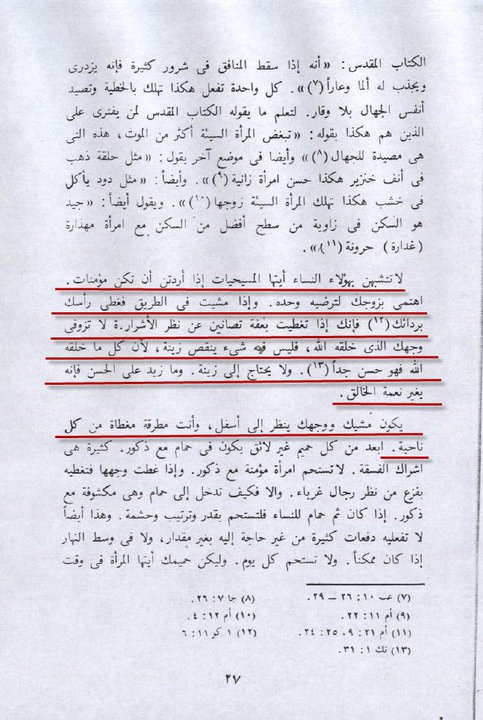 الكتاب المقدس: «أنه إذا سقط المنافق فى شرور كثيرة فإنه يزدرى
ويجذب له ألما وعاراً(٧)». كل واحدة تفعل هكذا تهلك بالخطية وتصيد
أنفس الجهال بلا وقار. لتعلم ما يقوله الكتاب المقدس لمن يفترى على
الذين هم هكذا بقوله: «تبغض المرأة السيئة أكثر من الموت، هذه التى
هى مصيدة للجهال(٨)» وأيضا فى موضع آخر يقول: «مثل حلقة ذهب
فى أنف خنزير هكذا حسن امرأة زانية(٩)». وأيضاً: «مثل دود يأكل
فى خشب هكذا تهلك المرأة السيئة زوجها(١٠)». ويقول أيضاً: «جيد
هو السكن فى زاوية من سطح أفضل من السكن مع امرأة مهذارة
(غدارة) حرونة(١١)».
لا تتشبهن بهؤلاء النساء أيتها المسيحيات إذا أردتن أن تكن مؤمنات.
اهتمى بزوجك لترضيه وحده. وإذا مشيت فى الطريق فغطى رأسك
بردائك(١٢) فإنك إذا تغطيت بعفة تصانين عن نظر الأشرار.ة لا تزوقى
وجهك الذى خلقه الله، فليس فيه شىء ينقص زينة، لأن كل ما خلقه
الله فهو حسن جداً(١٣). ولا يحتاج إلى زينة. وما زيد على الحسن فإنه
يغير نعمة الخالق.
يكون مشيك ووجهك ينظر إلى أسفل، وأنت مطرقة مغطاة من كل
ناحية. ابعد من كل حميم غير لائق يكون فى حمام مع ذكور. كثيرة هى
اشراك الفسقة. لا تستحم امرأة مؤمنة مع ذكور. وإذا غطت وجهها فتغطيه
بفزع من نظر رجال غرباء. والا فكيف تدخل إلى حمام وهى مكشوفة مع
ذكور. إذا كان ثم حمام للنساء فلتستحم بقدر وترتيب وحشمة. وهذا أيضاً
لا تفعليه دفعات كثيرة من غير حاجة إليه بغير مقدار، ولا فى وسط النهار
إذا كان ممكناً. ولا تستحم كل يوم. وليكن حميمك أيتها المرأة فى وقت
(٧) عب ١٠: ٢٦ – ٢٩. (٨) جا ٧: ٢٦.
(٩) أم ١١: ٢٢. (١٠) أم ١٢: ٤.
(١١) أم ٢١: ٩، ٢٥: ٢٤. (١٢) ١ كو ١١: ٦
(١٣) تك ١: ٣١.
٢٧